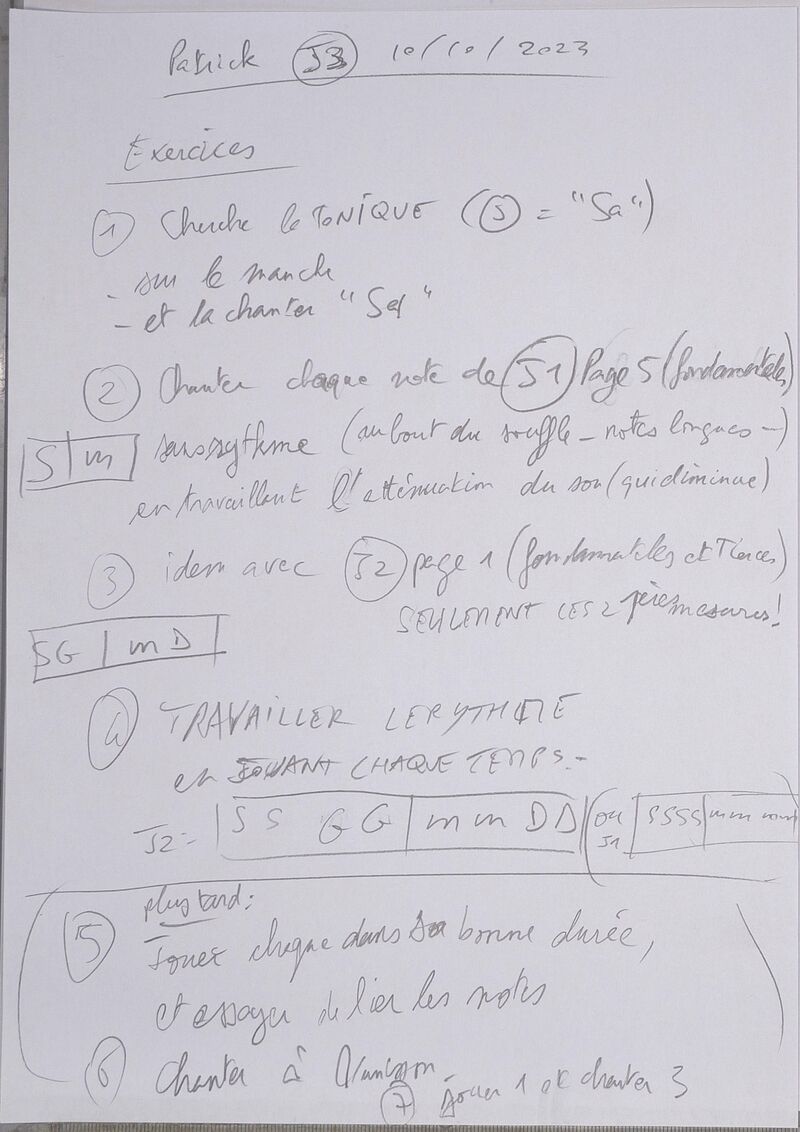 Patrick J3 10/10/2023
Exercices
1 Cherche la TONIQUE (S = "Sa")
- sur le manche
- et la chanter "Sa"
2 Chanter chaque note de J1 Page 5 (fondamentales)
S | m sans rythme (au bout du souffle - notes longues -)
en travaillant l'atténuation du son (qui diminue)
3 idem avec J2 page 1 (fondamentales et Tierces)
SEULEMENT LES 2 1ères mesures!
SG | m D
4 TRAVAILLER LE RYTHME
en JOUANT CHAQUE TEMPS.-
J2 = | S S G G | m m D D | (ou J1 | SSSS | mmmm
plus tard:
5 Jouer chaque dans sa bonne durée,
et essayer de lier les notes
6 Chanter à l'unisson -
7 Jouer 1 et chanter 3